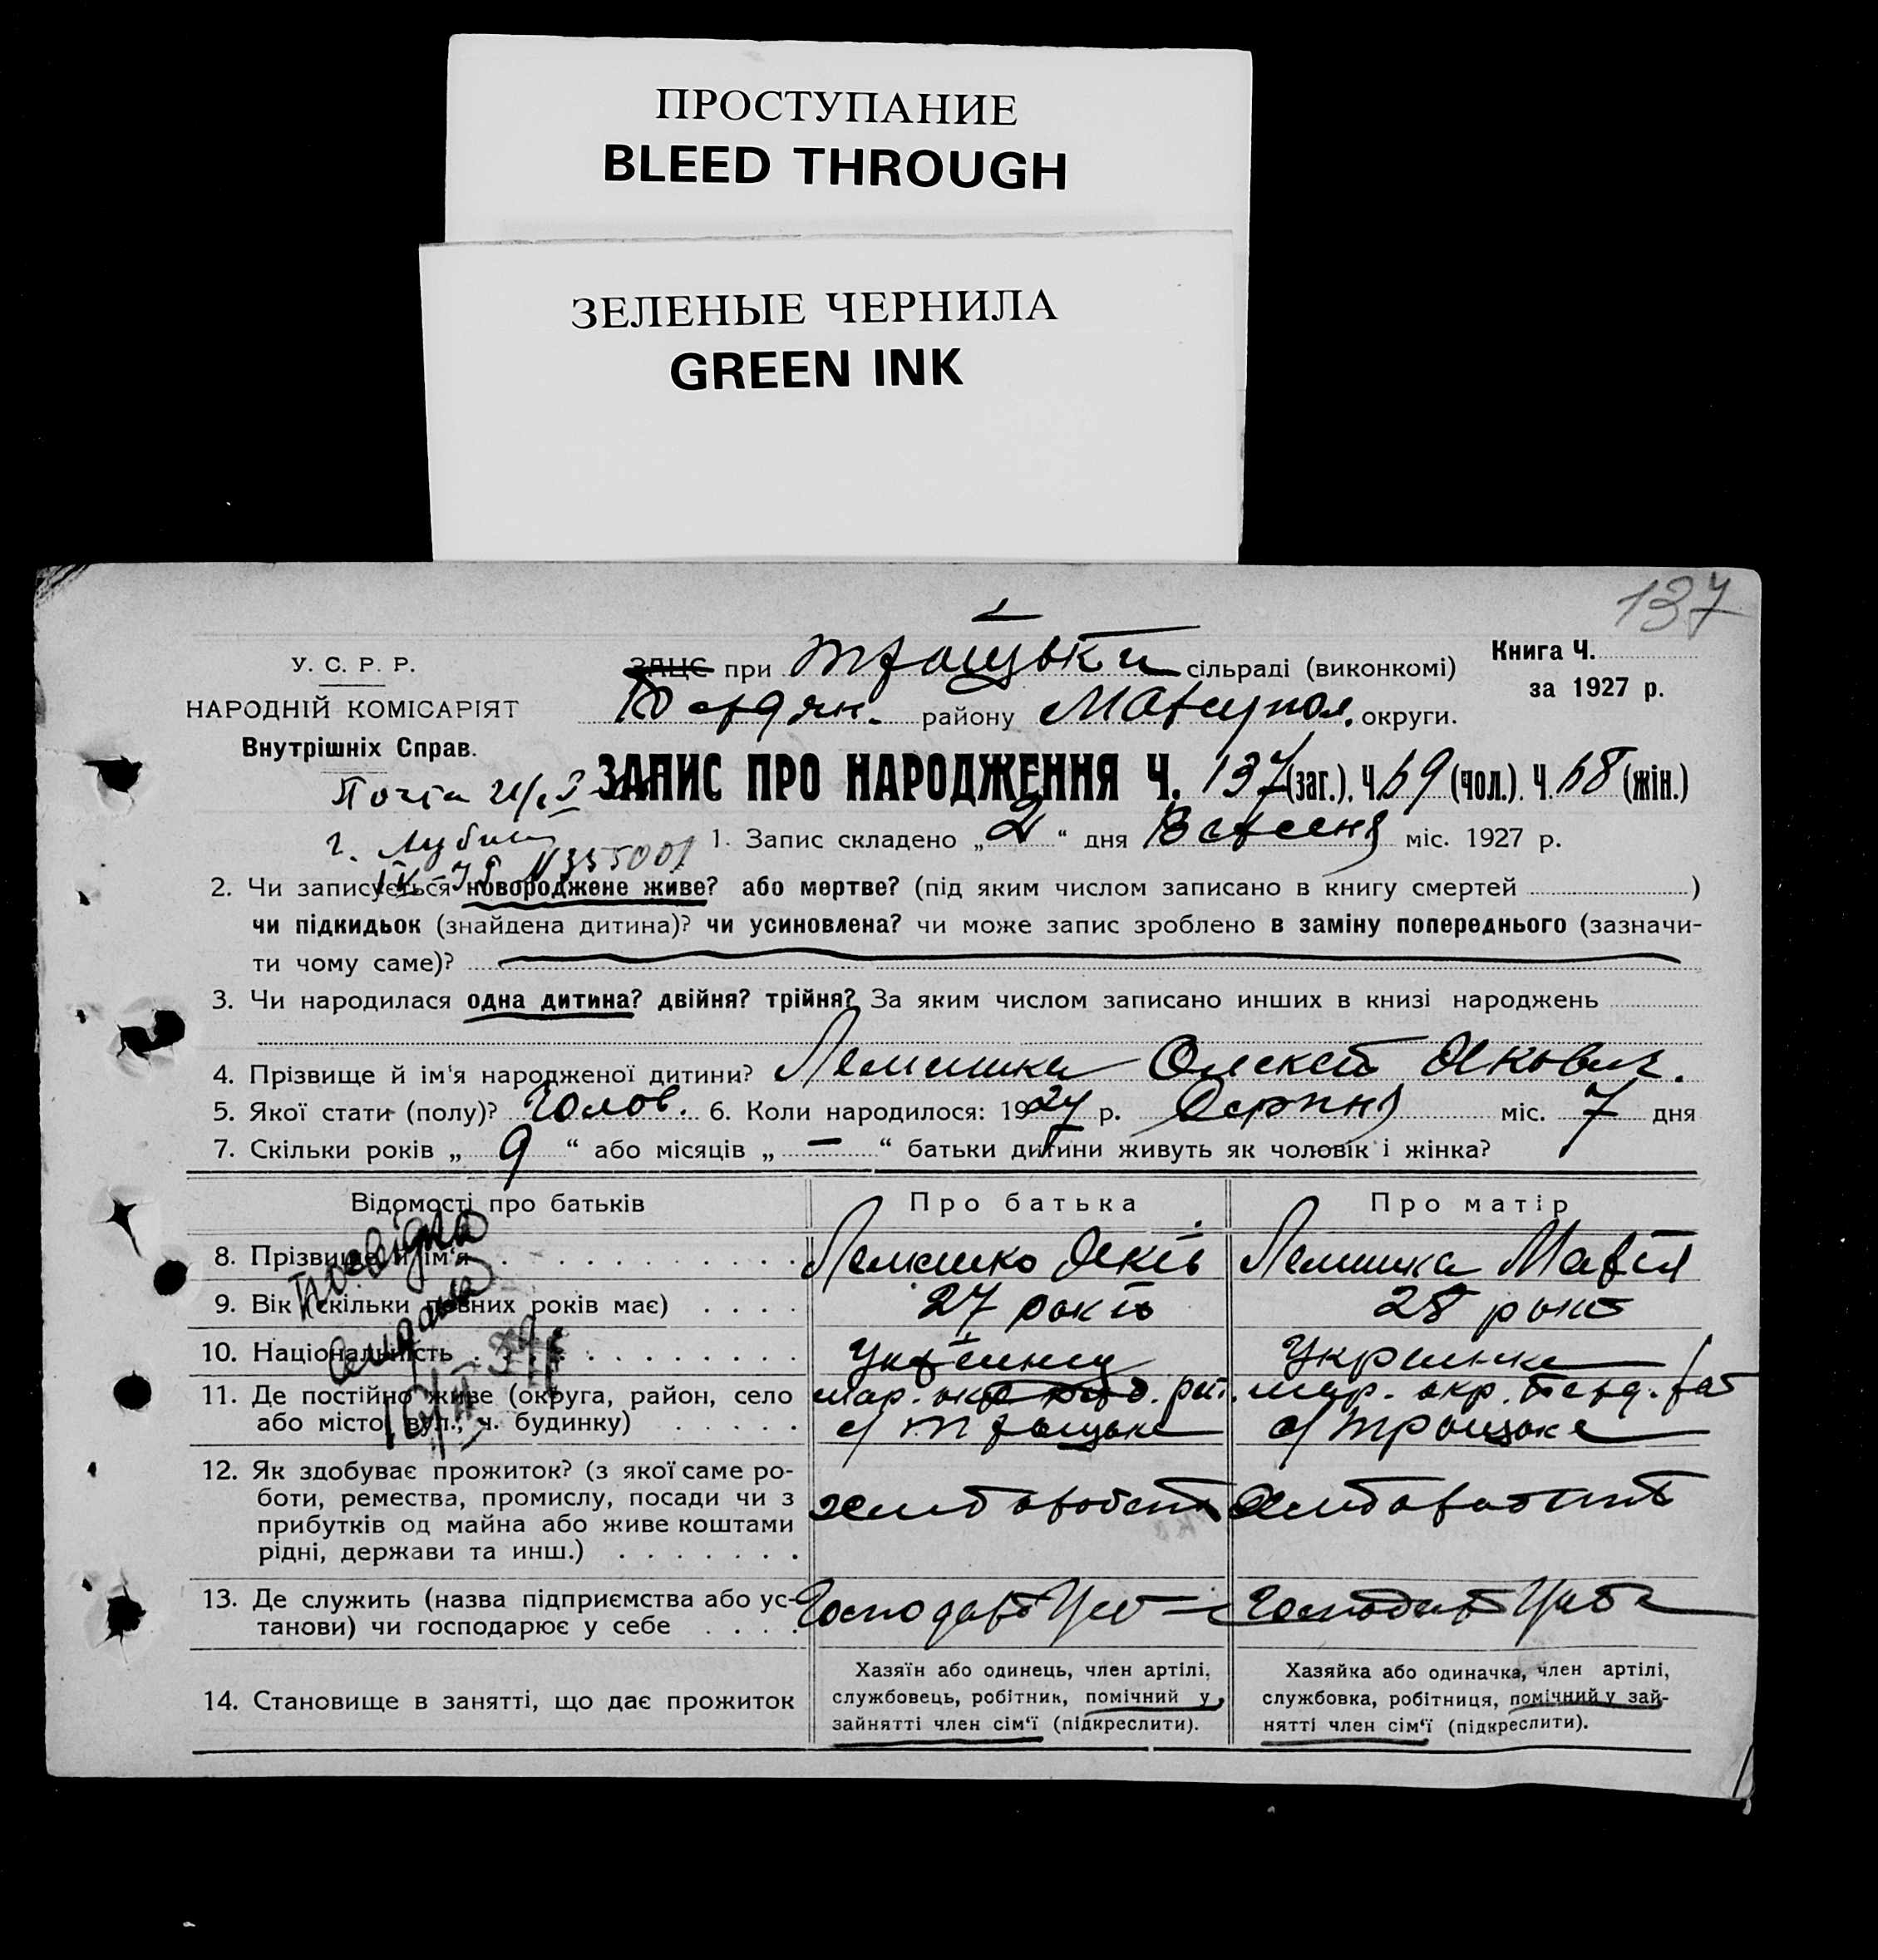 ПРОСТУПАНИЕ
BLEED THROUGH
ЗЕЛЕНЫЕ ЧЕРНИЛА
GREEN INK
137
У. С. Р. Р.
НАРОДНІЙ КОМІСАРІЯТ
Внутрішніх Справ.
ЗАЦС при Троцькій сільраді (виконкомі)
Бердян. района Маріупол. округи.
Книга Ч.
за 1927 р.
ЗАПИС ПРО НАРОДЖЕННЯ Ч. 137 (заг.). Ч. 69 (чол.). Ч. 68 (жін.)
1. Запис складено „2“ дня Вересня міс. 1927 р.
2. Чи записується новороджене живе? або мертве? (під яким числом записано в книгу смертей )
чи підкидьок (знайдена дитина)? чи усиновлена? чи може запис зроблено в заміну попереднього (зазначи-
ти чому саме)?
3. Чи народилася одна дитина? двійня? трійня? За яким числом записано инших в книзі народжень
4. Прізвище й ім'я народженої дитини? Лемешка Олексій Якович.
5. Якої стати (полу)? Чолов. 6. Коли народилося: 1927 р. Серпня міс. 7 дня
7. Скільки років „ 9 “ або місяців „ — “ батьки дитини живуть як чоловік і жінка?
Відомості про батьків Про батька Про матір
8. Прізвище й ім'я Лемешко Яків Лемешка Марія
9. Вік (скільки повних років має) 27 років 28 років
10. Національність Українец Украинка
11. Де постійно живе (округа, район, село
або місто, вул., ч. будинку)
мар. окр. рай.
с/ Троцьке
мар. окр. Берд. рай
с/ Троцьке
Посвідка
12. Як здобуває прожиток? (з якої саме ро-
боти, ремества, промислу, посади чи з
прибутків од майна або живе коштами
рідні, держави та инш.)
хлібороб
13. Де служить (назва підприємства або ус-
танови) чи господарює у себе
14. Становище в занятті, що дає прожиток
Хазяїн або одинець, член артілі,
службовець, робітник, помічний у
зайнятті член сім'ї (підкреслити).
Хазяйка або одиначка, член артілі,
службовка, робітниця, помічний у зай-
нятті член сім'ї (підкреслити).